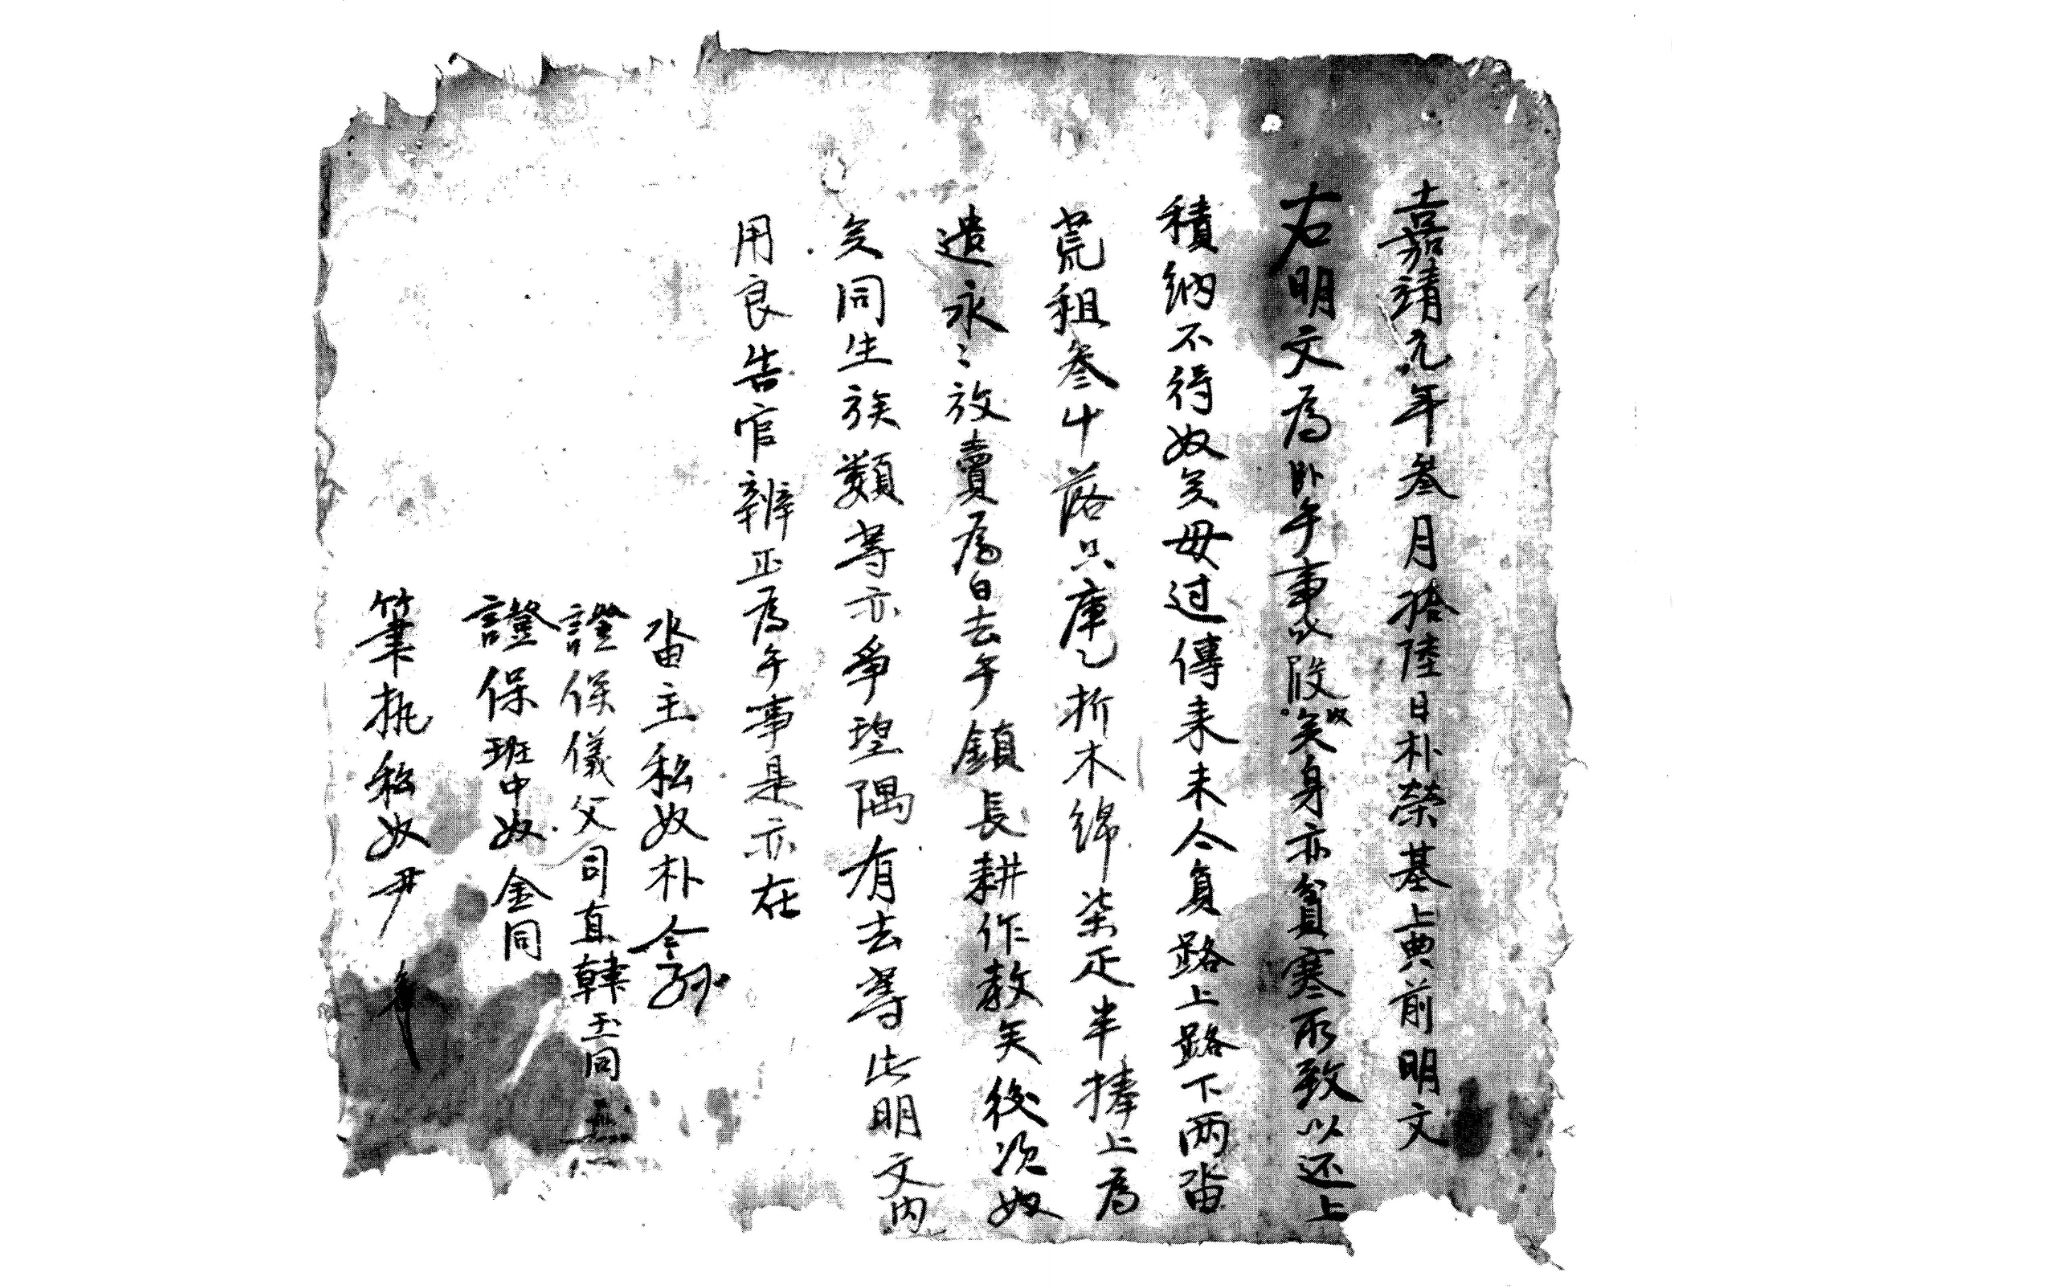 嘉靖元年叁月拾陸日朴榮基上典前明文
右明文爲卧乎事以段奴矣身亦貧寒所致以还上
積納不得奴矣母过傳來未今負路上路下两畓
荒租叁斗落只庫乙折木綿柒疋半捧上爲
遣永〻放賣爲白去乎鎮長耕作教矣後次奴
矣同生族類等亦爭望隅有去等此明文内
用良告官辨正爲乎事是亦在
畓主私奴朴今孫
證保儀父司直韓玉同
證保班中奴金同
筆執私奴尹